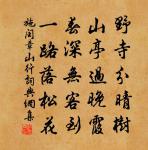 野寺分晴樹
山亭過晚霞
春深無客到
一路落松花
施閏章山行詞典網集